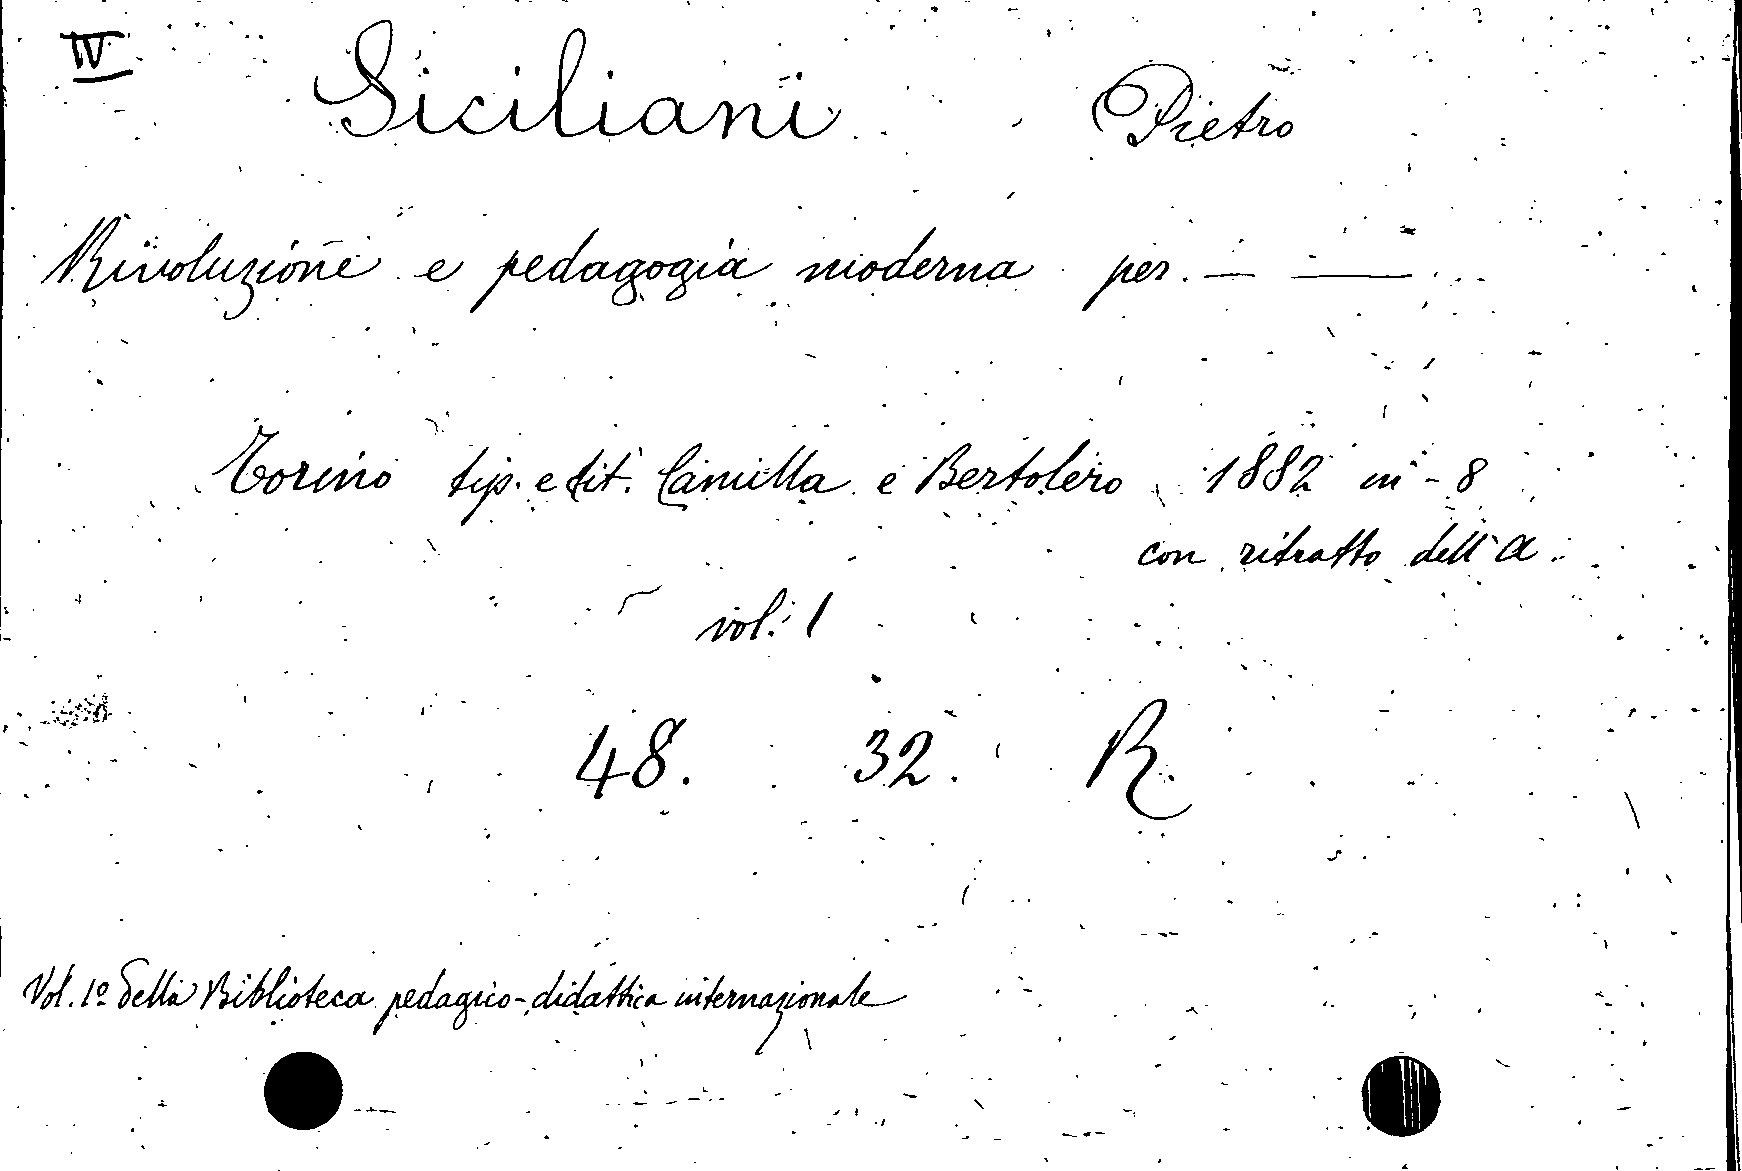 IV
Siciliani Pietro
Rivoluzione e pedagogia moderna per. — ——
Torino tip. e lit. Camilla e Bertolero 1882 in-8
con ritratto dell'a.
vol. 1
48. 32. R.
Vol. 1º della Biblioteca pedagico-didattica internazionale